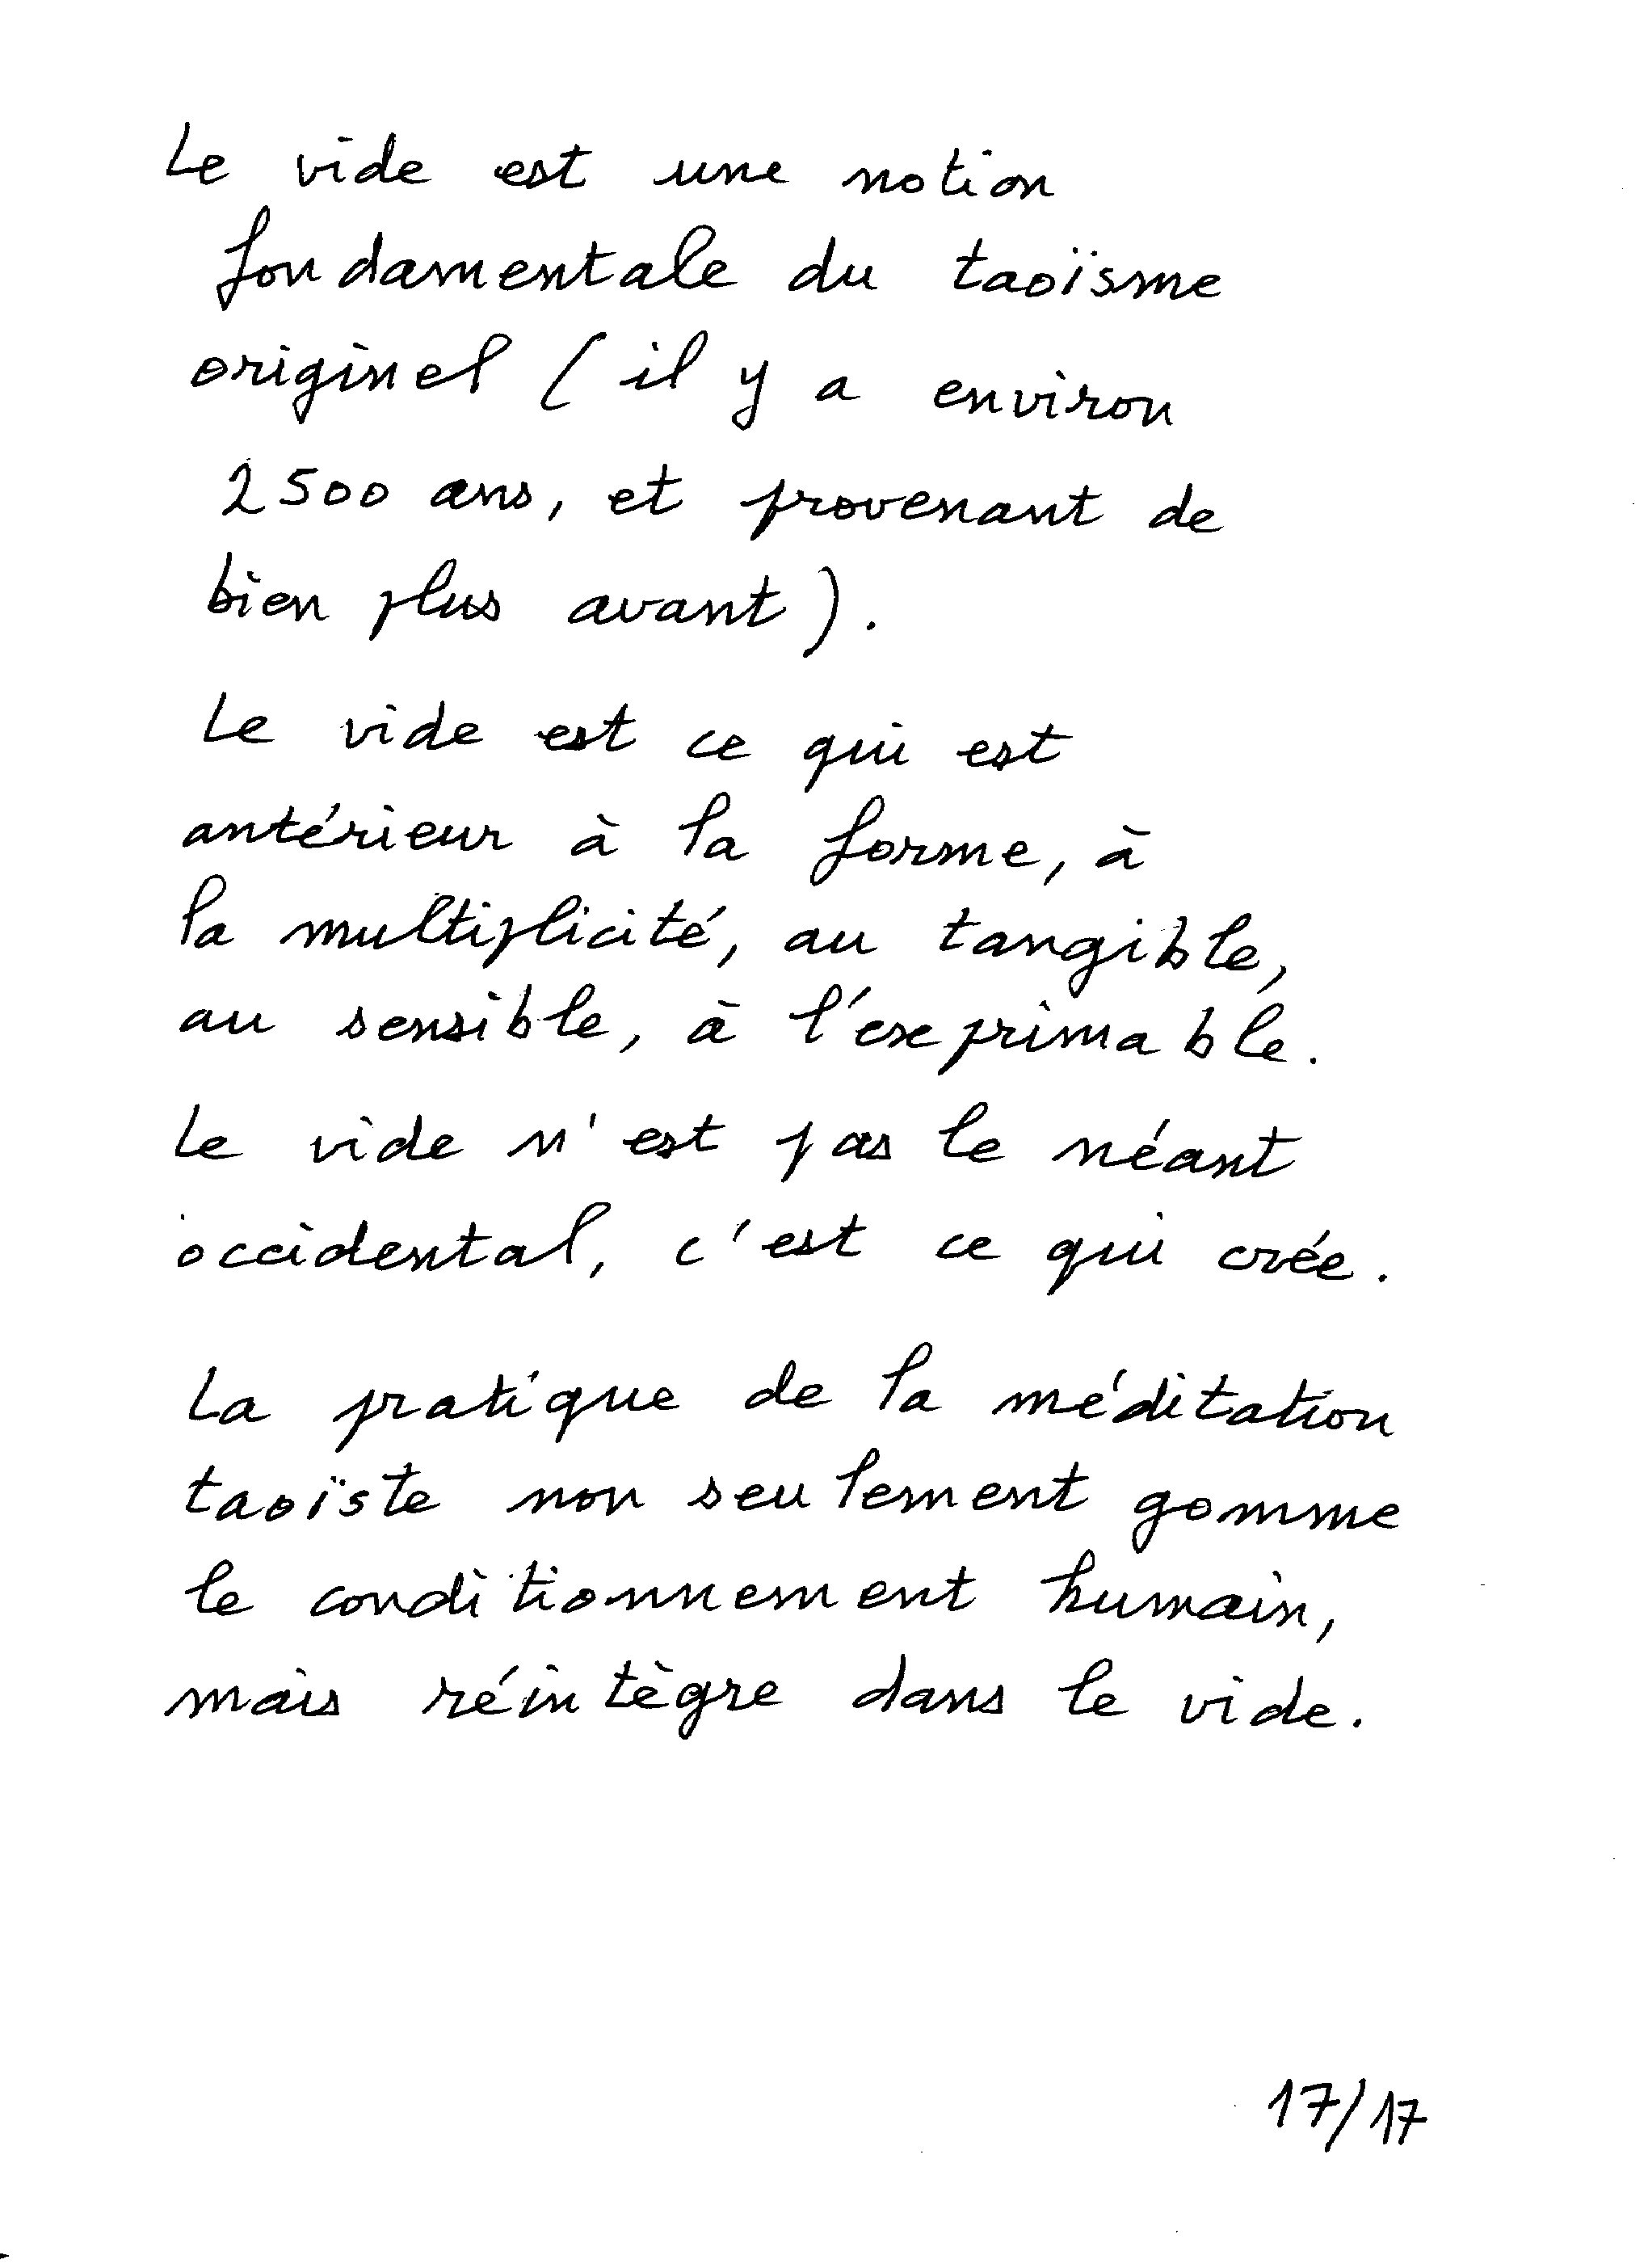 Le vide est une notion
fondamentale du taoïsme
originel (il y a environ
2500 ans, et provenant de
bien plus avant).
Le vide est ce qui est
antérieur à la forme, à
la multiplicité, au tangible,
au sensible, à l'exprimable.
Le vide n'est pas le néant
occidental, c'est ce qui crée.
La pratique de la méditation
taoïste non seulement gomme
le conditionnement humain,
mais réintègre dans le vide.
17/17